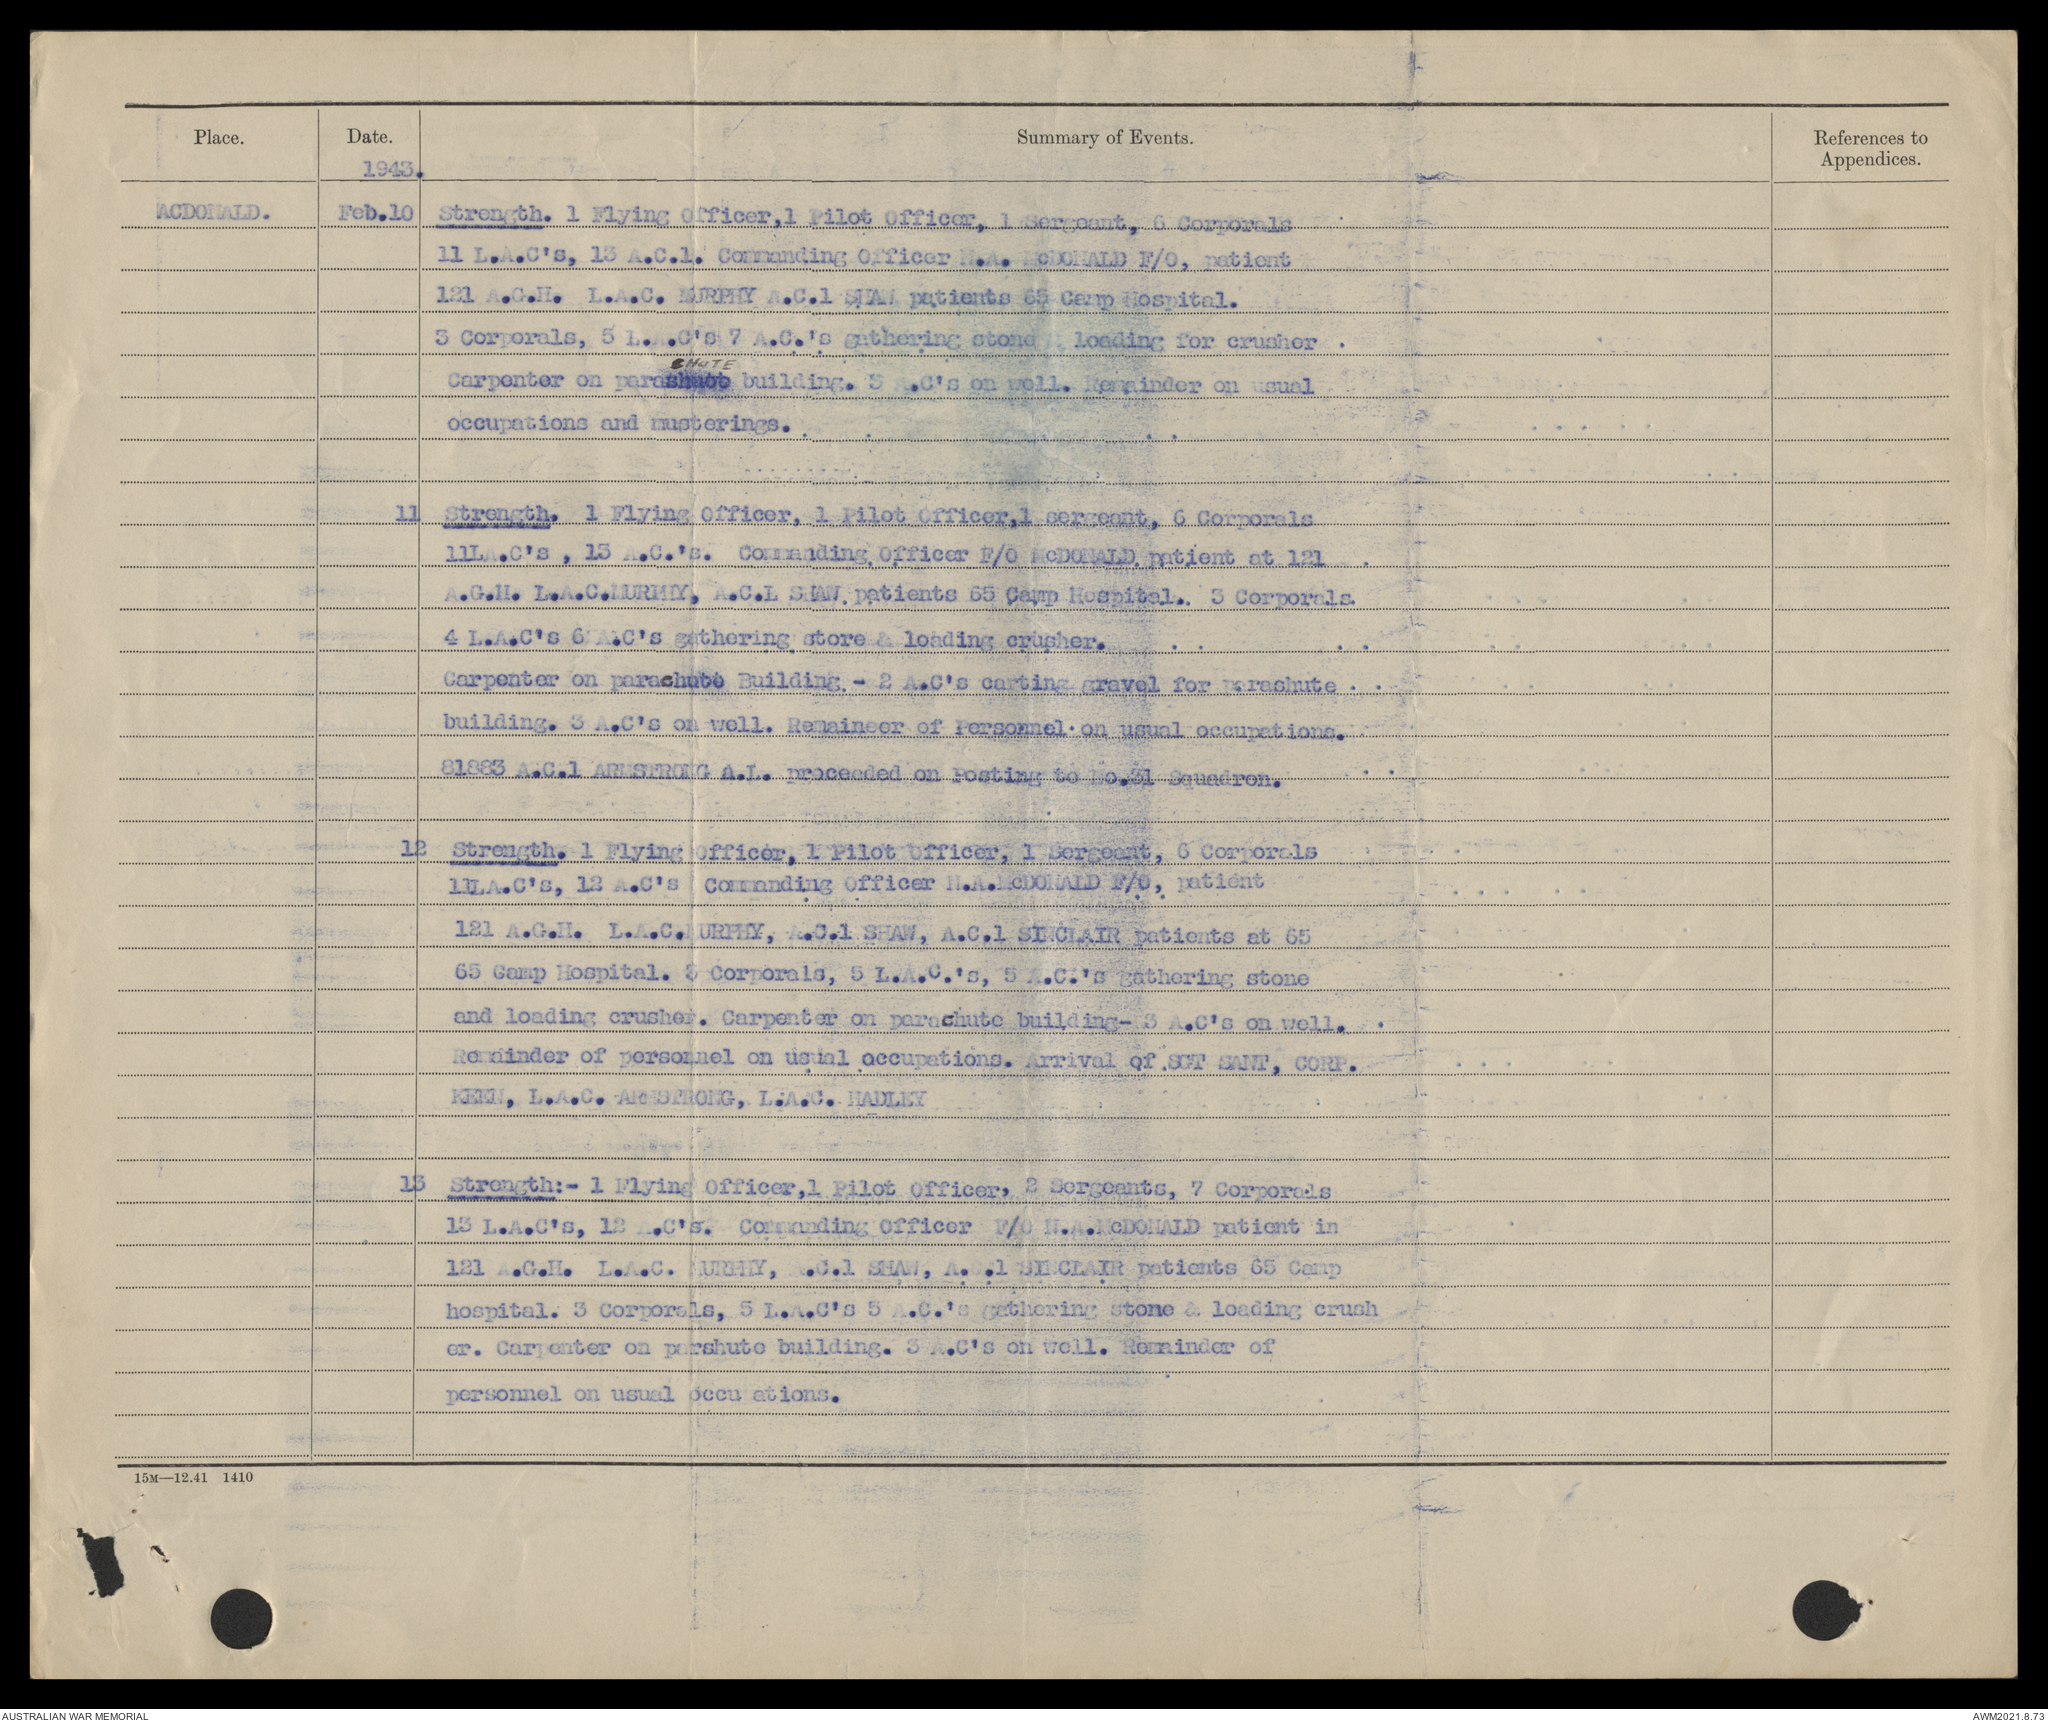 Place. Date. Summary of Events. References to
Appendices.
1943.
ACDONALD. Feb.10 Strength. 1 Flying Officer,1 Pilot Officer, 1 Sergeant, 6 Corporals
11 L.A.C's, 13 A.C.1. Commanding Officer N.A. McDONALD F/O, patient
121 A.G.H. L.A.C. MURPHY A.C.1 SHAW patients 65 Camp Hospital.
3 Corporals, 5 L.A.C's 7 A.C.'s gathering stone & loading for crusher
CHUTE
Carpenter on parashuot building. 3 A.C's on well. Remainder on usual
occupations and musterings.
11 Strength. 1 Flying Officer, 1 Pilot Officer,1 sergeant, 6 Corporals
11LA.C's , 13 A.C.'s. Commanding Officer F/O McDONALD patient at 121
A.G.H. L.A.C.MURPHY, A.C.L SHAW patients 65 Camp Hospital. 3 Corporals.
4 L.A.C's 6 A.C's gathering store & loading crusher.
Carpenter on parachute Building - 2 A.C's carting gravel for parashute
building. 3 A.C's on well. Remaineer of Personnel on usual occupations.
81883 A.C.1 ARMSTRONG A.L. proceeded on Posting to No.31 Squadron.
12 Strength. 1 Flying Officer, 1 Pilot Officer, 1 Sergeant, 6 Corporals
11LA.C's, 12 A.C's Commanding Officer N.A.McDONALD F/O, patient
121 A.G.H. L.A.C.MURPHY, A.C.1 SHAW, A.C.1 SINCLAIR patients at 65
65 Camp Hospital. 3 Corporals, 5 L.A.C.'s, 5 A.C.'s gathering stone
and loading crusher. Carpenter on parachute building- 3 A.C's on well.
Remainder of personnel on usual occupations. Arrival of SGT SANT, CORP.
KEEN, L.A.C. ARMSTRONG, L.A.C. HADLEY
13 Strength:- 1 Flying Officer,1 Pilot Officer, 2 Sergeants, 7 Corporals
13 L.A.C's, 12 A.C's. Commanding Officer F/O N.A.McDONALD patient in
121 A.G.H. L.A.C. MURPHY, A.C.1 SHAW, A.C.1 SINCLAIR patients 65 Camp
hospital. 3 Corporals, 5 L.A.C's 5 A.C.'s gathering stone & loading crush
er. Carpenter on parshute building. 3 A.C's on well. Remainder of
personnel on usual occu ations.
15M—12.41 1410
AUSTRALIAN WAR MEMORIAL AWM2021.8.73